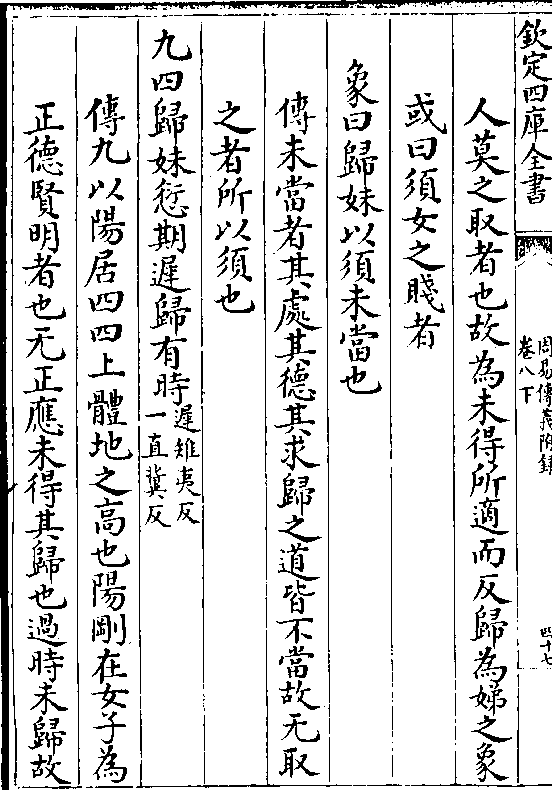 欽定四庫全書
周易傳義附錄
卷八下
四十七
人莫之取者也故為未得所適而反歸為娣之象
或曰須女之賤者
象曰歸妹以須未當也
傳未當者其處其德其求歸之道皆不當故无取
之者所以須也
九四歸妹愆期遲歸有時遲雉夷反
一直冀反
傳九以陽居四四上體地之高也陽剛在女子為
正德賢明者也无正應未得其歸也過時未歸故